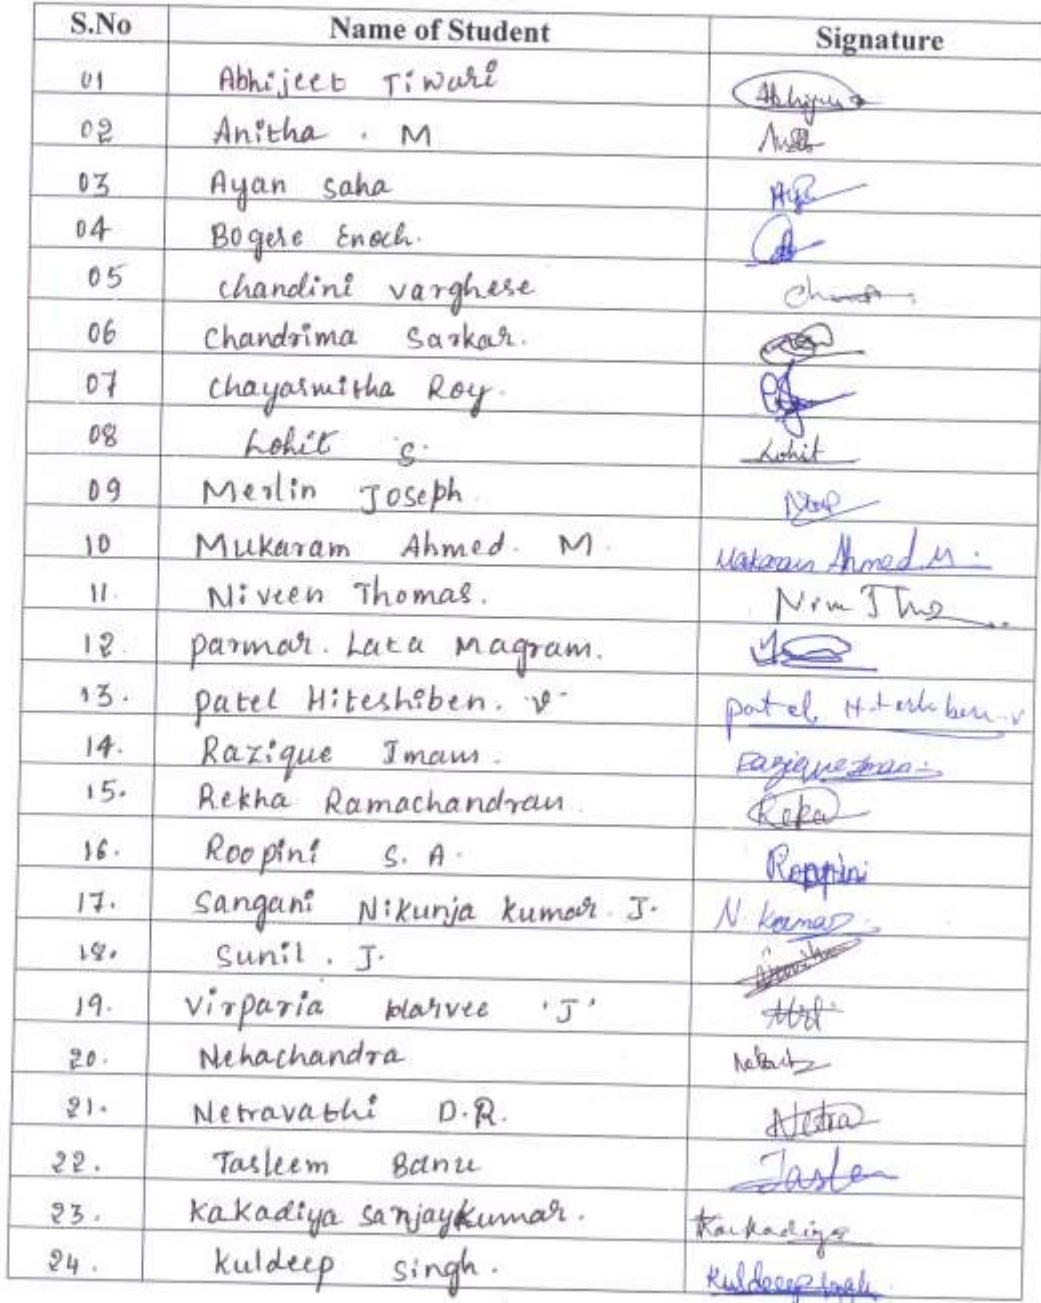 S.No Name of Student Signature
01 Abhijeet Tiwari
02 Anitha . M
03 Ayan saha
04 Bogere Enoch.
05 chandini varghese
06 Chandrima Sarkar.
07 Chayasmitha Roy.
08 Lohit S. Lohit
09 Merlin Joseph
10 Mukaram Ahmed. M. Mukaram Ahmed. M.
11. Niveen Thomas.
12. parmar. Lata Magram.
13. patel Hiteshiben. v. patel Hiteshiben. v
14. Razique Imam. Razique Imam
15. Rekha Ramachandran
16. Roopini S. A. Roopini
17. Sangani Nikunja kumar. J. N. Kumar
18. Sunil . J.
19. Virparia Harvee 'J'
20. Nehachandra
21. Netravathi D.R. Netra
22. Tasleem Banu Taslem
23. kakadiya sanjaykumar. Kakadiya
24. kuldeep singh. Kuldeep Singh